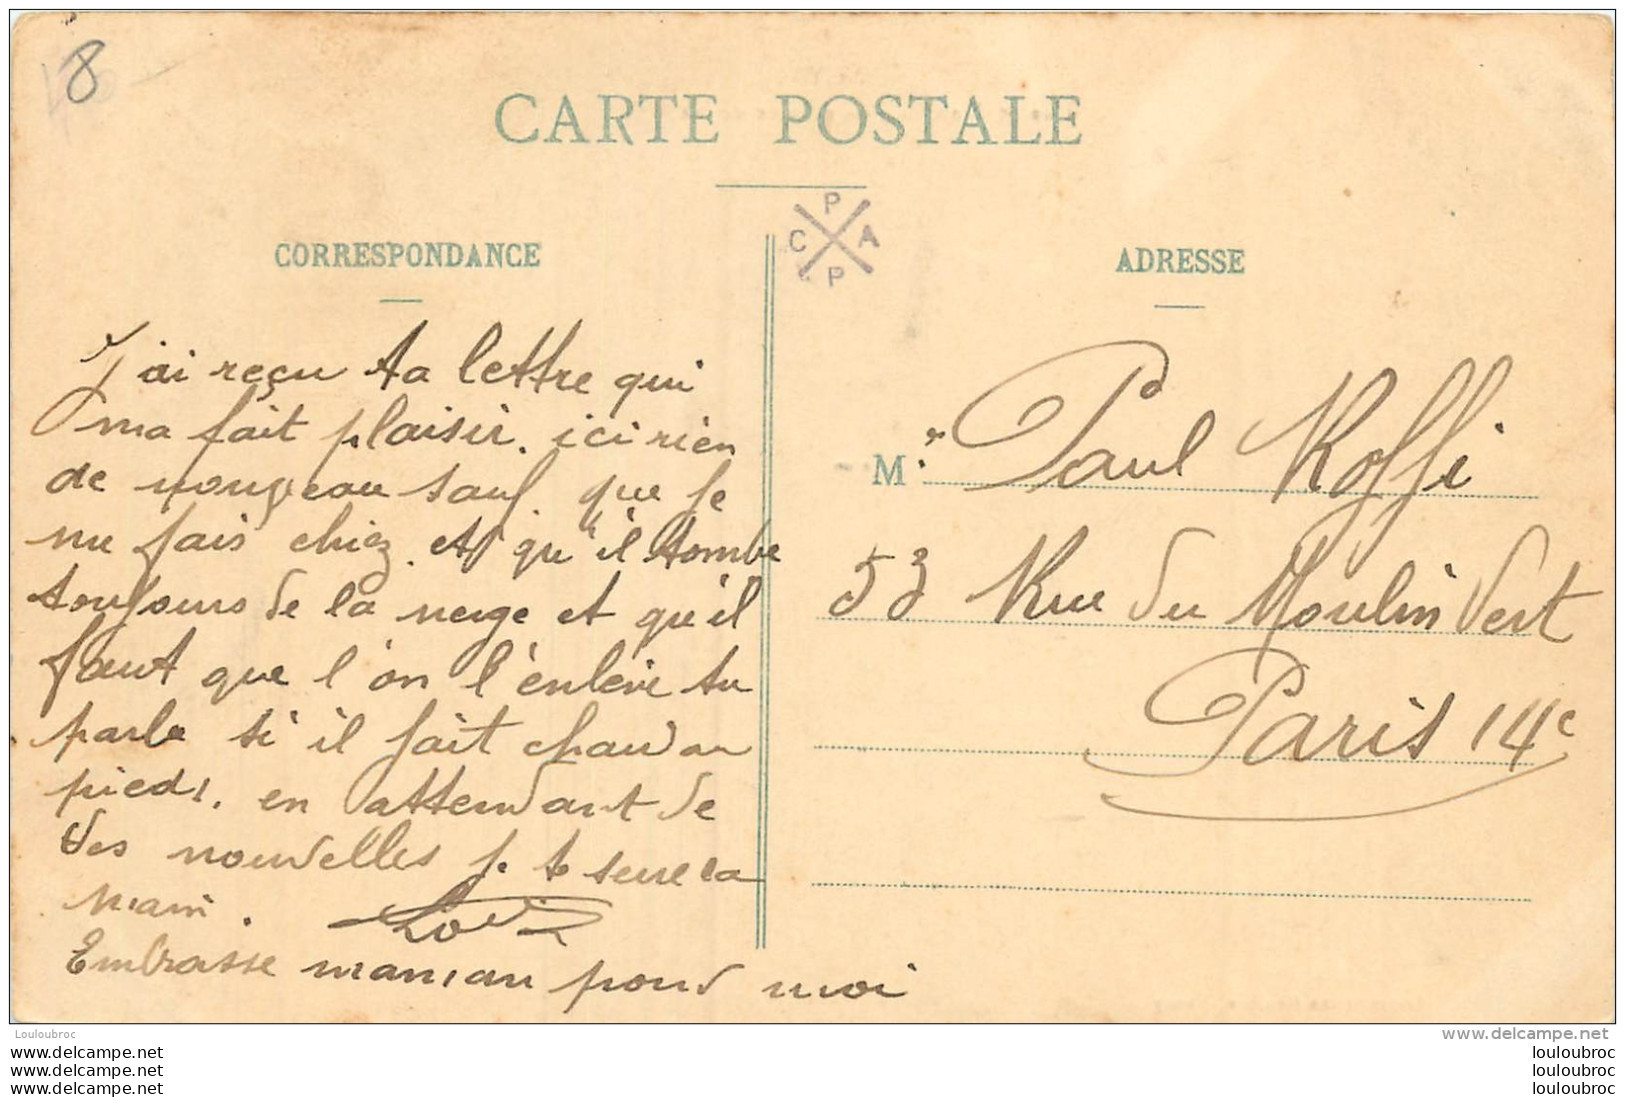 8
CARTE POSTALE
P
C A
P
CORRESPONDANCE
ADRESSE
J'ai reçu ta lettre qui
ma fait plaisir. ici rien
de nouveau sauf que je
me fais chiez et qu'il tombe
toujours de la neige et qu'il
faut que l'on l'enlève tu
parle si il fait chaud au
pieds. en attendant de
des nouvelles je te serre la
main.
Embrasse maman pour moi
M. Paul Koffi
53 Rue du Moulin Vert
Paris 14e
Louloubroc
delcampe.net
www.delcampe.net louloubroc
www.delcampe.net louloubroc
www.delcampe.net louloubroc